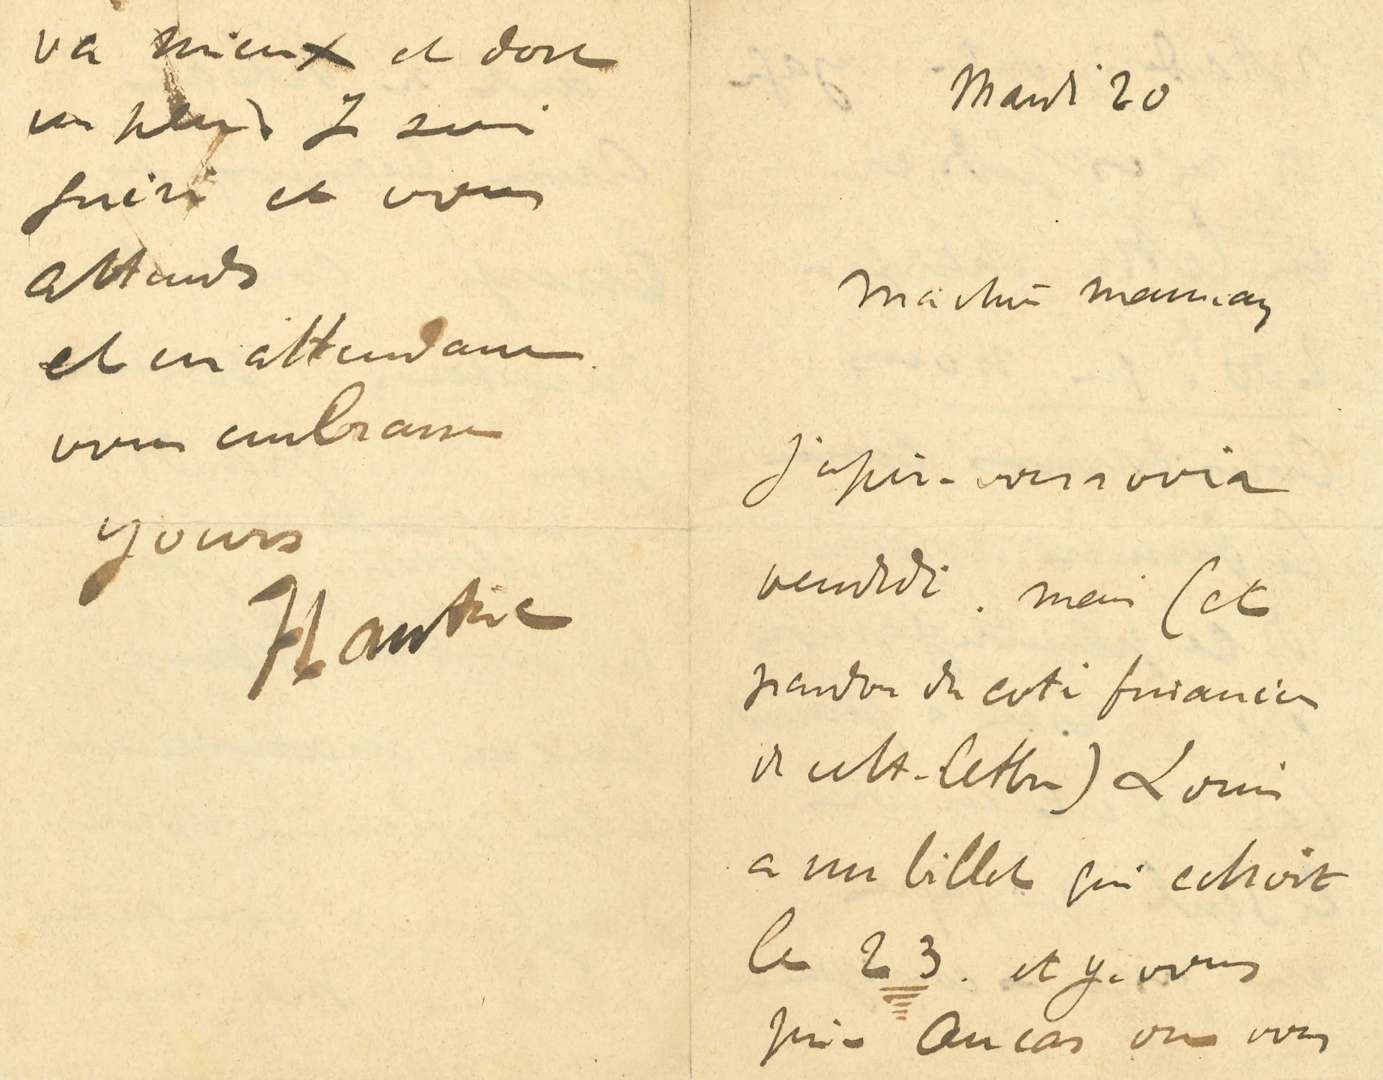 Mardi 20
Ma chère maman
J'espère vous revoir
vendredi. mais (et
pardon du coté financier
de cette lettre) Louis
a un billet qui echoit
le 23. et je vous
prie au cas où vous
va mieux et dort
un peu. Je suis
guéri et vous
attends
et en attendant
vous embrasse
yours